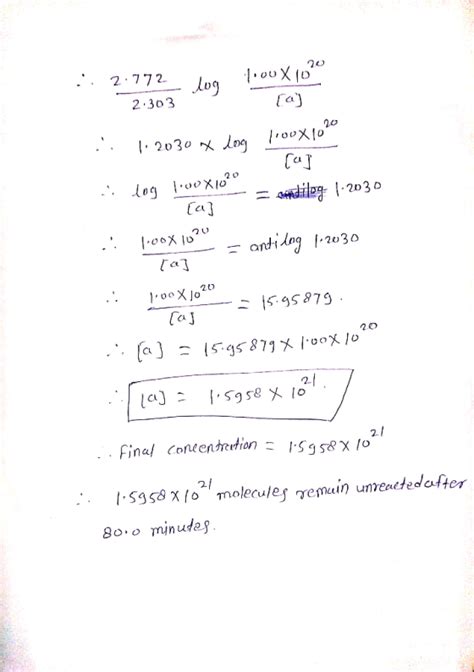 ∴ 2.772/2.303 log 1.00×10²⁰/[a]
∴ 1.2030 × log 1.00×10²⁰/[a]
∴ log 1.00×10²⁰/[a] = antilog 1.2030
∴ 1.00×10²⁰/[a] = antilog 1.2030
∴ 1.00×10²⁰/[a] = 15.95879.
∴ [a] = 15.95879 × 1.00×10²⁰
∴ [a] = 1.5958 × 10²¹.
∴ Final concentration = 1.5958×10²¹
∴ 1.5958×10²¹ molecules remain unreacted after
80.0 minutes.